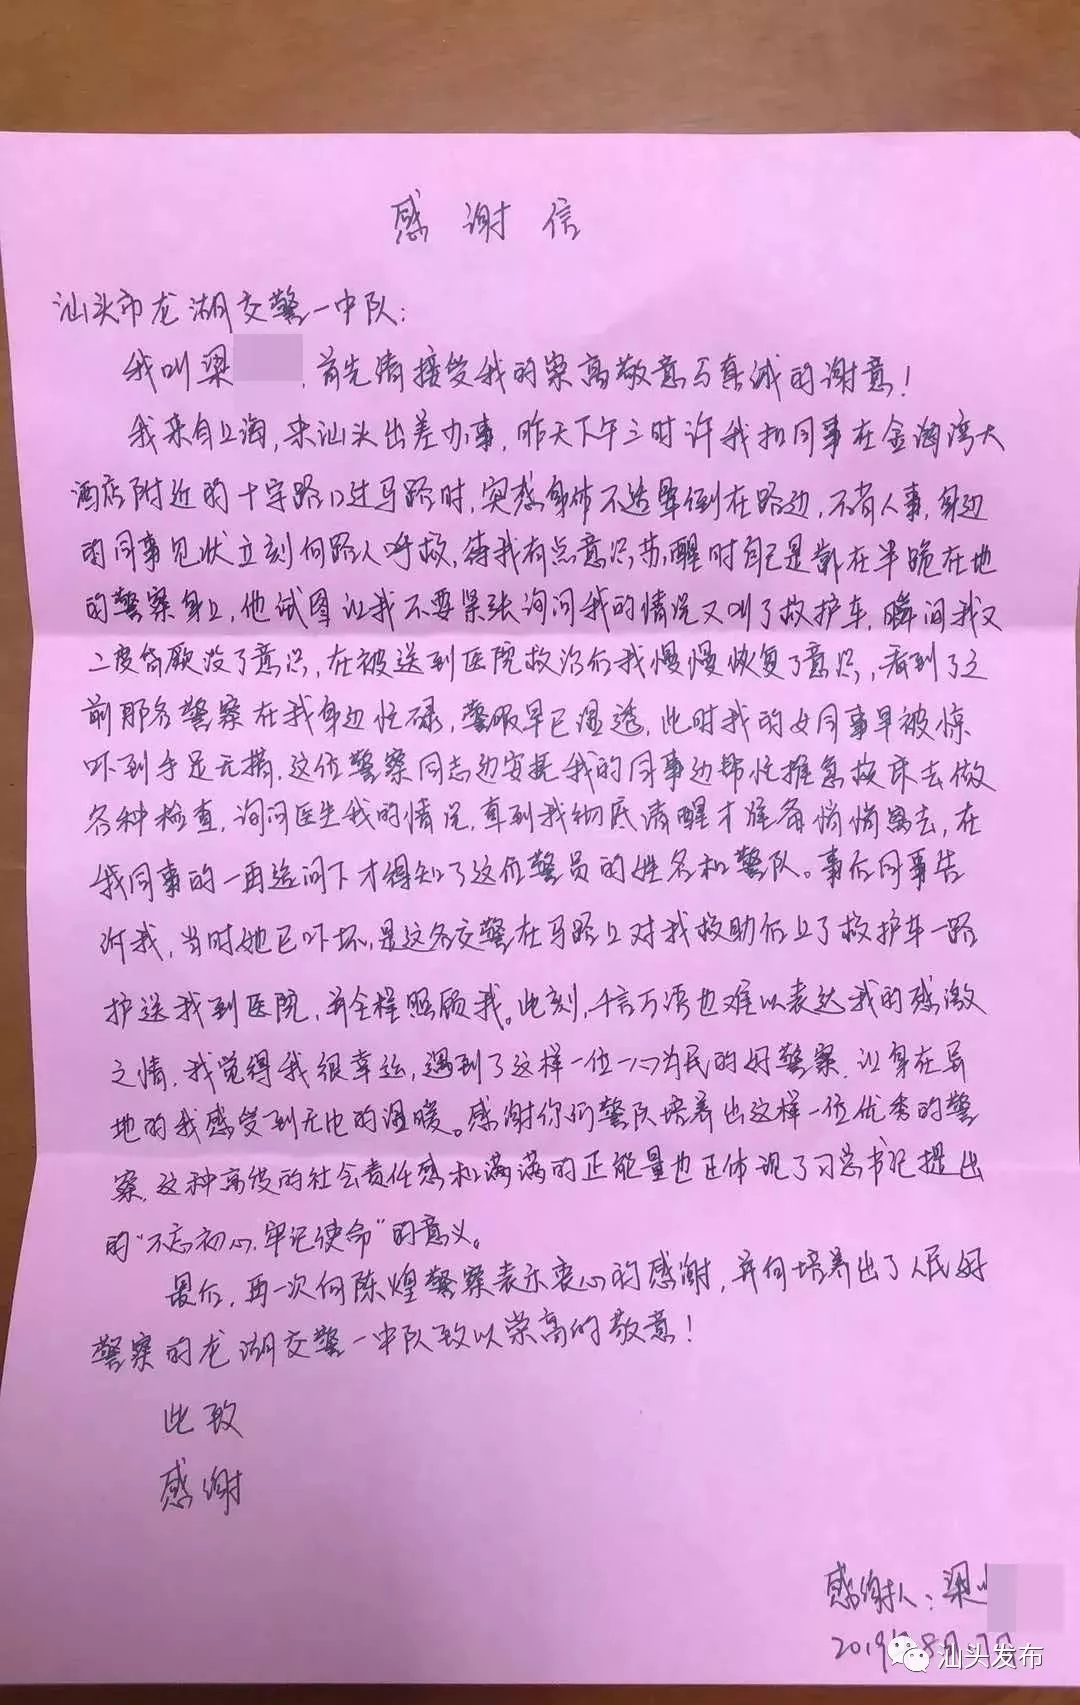 感谢信
汕头市龙湖交警一中队:
我叫梁 首先请接受我的崇高敬意与真诚的谢意!
我来自上海,来汕头出差办事,昨天下午三时许我和同事在金海湾大
酒店附近的十字路口过马路时,突感身体不适晕倒在路边,不省人事,身边
的同事见状立刻向路人呼救,待我有点意识苏醒时自己是靠在半跪在地
的警察身上,他试图让我不要紧张询问我的情况又叫了救护车,瞬间我又
二度昏厥没了意识,在被送到医院救治后我慢慢恢复了意识,看到了之
前那名警察在我身边忙碌,警服早已湿透,此时我的女同事早被惊
吓到手足无措,这位警察同志边安抚我的同事边帮忙推急救床去做
各种检查,询问医生我的情况,直到我彻底清醒才准备悄悄离去,在
我同事的一再追问下才得知了这位警员的姓名和警队。事后同事告
诉我,当时她已吓坏,是这名交警在马路上对我救助后上了救护车一路
护送我到医院,并全程照顾我。此刻,千言万语也难以表达我的感激
之情,我觉得我很幸运,遇到了这样一位一心为民的好警察,让身在异
地的我感受到无比的温暖。感谢你们警队培养出这样一位优秀的警
察,这种高度的社会责任感和满满的正能量也正体现了习总书记提出
的“不忘初心,牢记使命”的意义。
最后,再一次向陈煌警察表示衷心的感谢,并向培养出了人民好
警察的龙湖交警一中队致以崇高的敬意!
此致
感谢
感谢人:梁
2019年8月
汕头发布